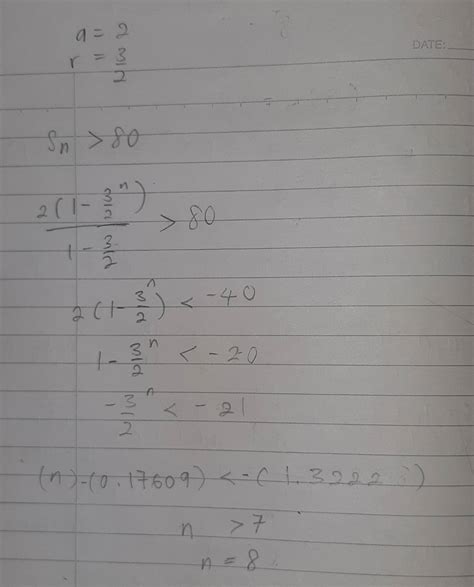 a = 2
DATE:
r = 3/2
Sn > 80
2(1 - 3/2^n) / 1 - 3/2 > 80
2(1 - 3/2^n) < -40
1 - 3/2^n < -20
-3/2^n < -21
(n) -(0.17609) < -(1.3222)
n > 7
n = 8